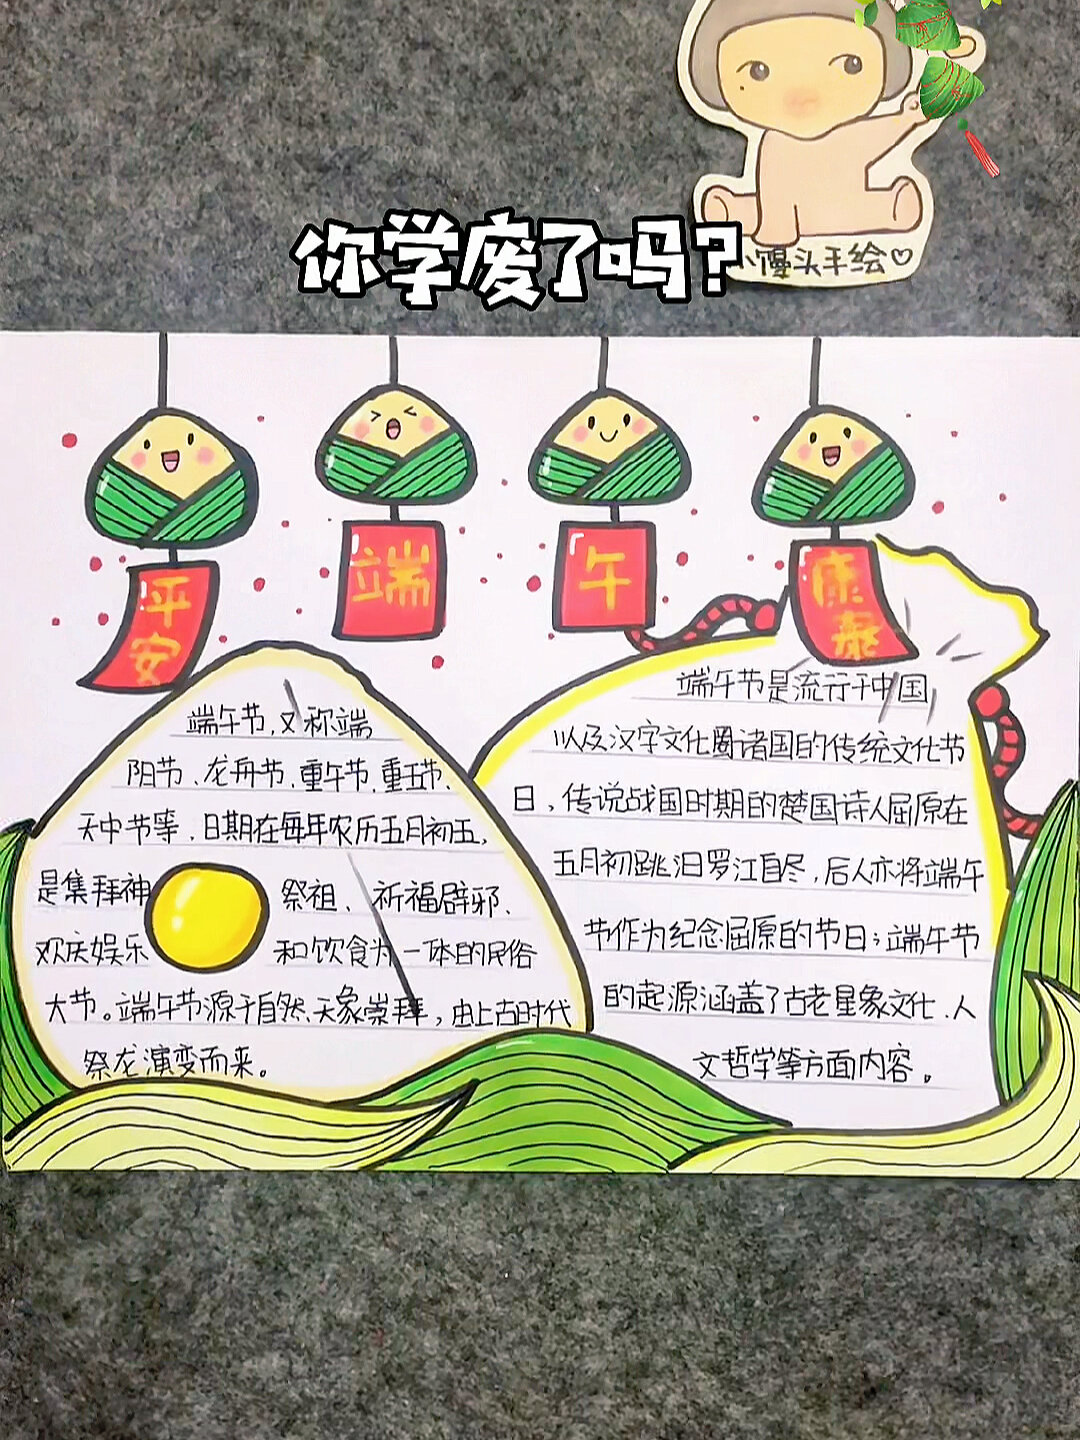 你学废了吗?
小馒头手绘♡
平安
端
午
康泰
端午节,又称端
阳节、龙舟节、重午节、重五节、
天中节等,日期在每年农历五月初五,
是集拜神 祭祖、祈福辟邪、
欢庆娱乐 和饮食为一体的民俗
大节。端午节源于自然天象崇拜,由上古时代
祭龙演变而来。
端午节是流行于中国
以及汉字文化圈诸国的传统文化节
日,传说战国时期的楚国诗人屈原在
五月初跳汨罗江自尽,后人亦将端午
节作为纪念屈原的节日;端午节
的起源涵盖了古老星象文化、人
文哲学等方面内容。